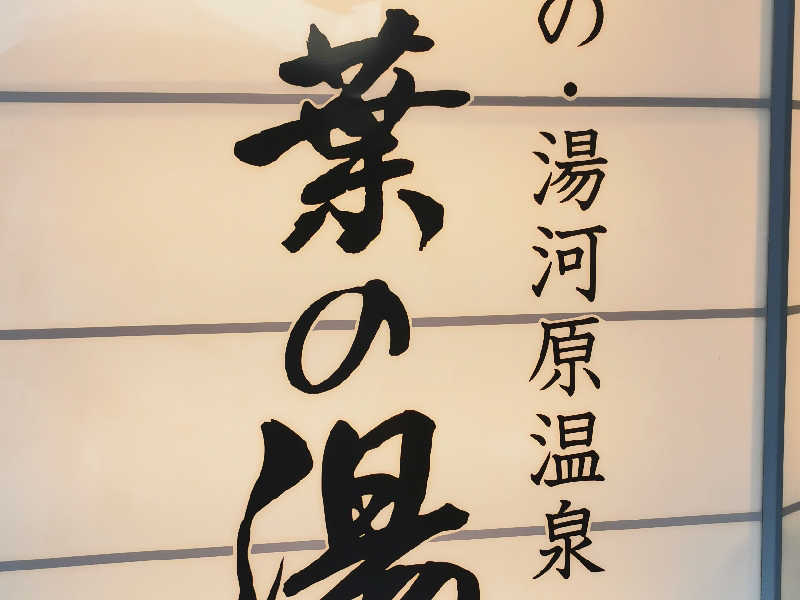 の・湯河原温泉
葉の湯